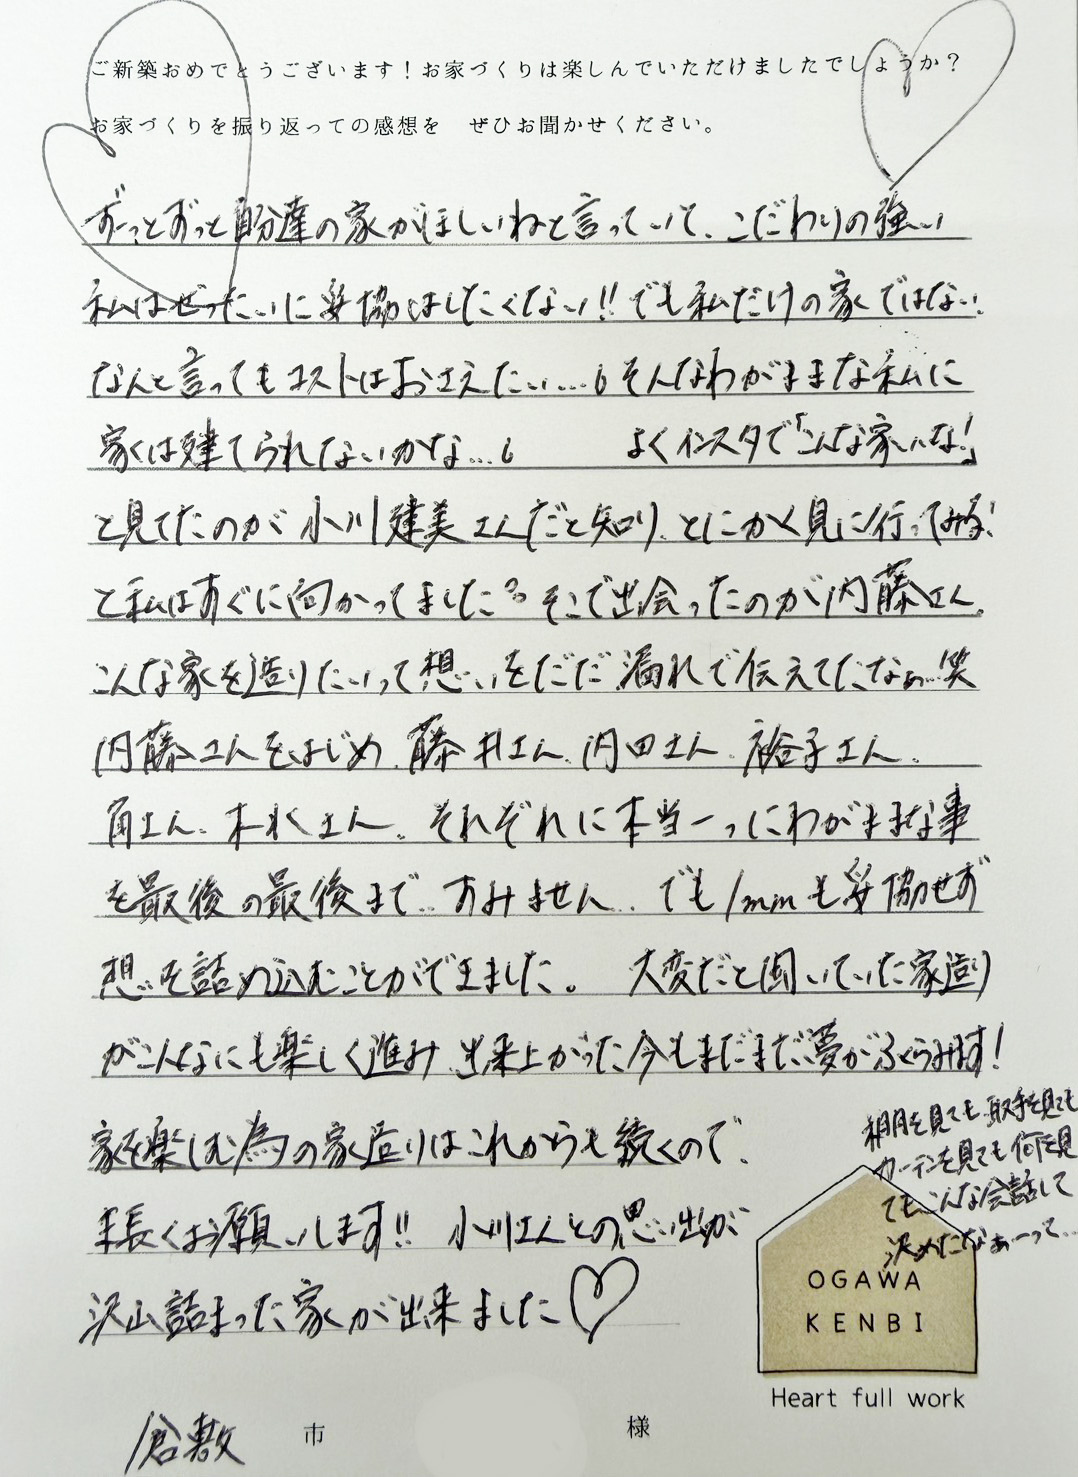 ご新築おめでとうございます！お家づくりは楽しんでいただけましたでしょうか？
お家づくりを振り返っての感想を　ぜひお聞かせください。
ずーっとずっと自分達の家がほしいねと言っていて、こだわりの強い
私はぜったいに妥協はしたくない!! でも私だけの家ではない!
なんと言ってもコストはおさえたい…。そんなわがままな私に
家は建てられないかな…。 よくインスタで「こんな家いいな!」
と見てたのが小川建美さんだと知り、とにかく見に行ってみる!
と私はすぐに向かってました。そこで出会ったのが内藤さん。
こんな家を造りたいって想いをだだ漏れで伝えてたなぁ…笑
内藤さんをはじめ、藤井さん、内田さん、裕子さん、
角さん、さん、それぞれに本当一つにわがままな事
を最後の最後まで…すみません…でも1mmも妥協せず
想いを詰め込むことができました。 大変だと聞いていた家造り
がこんなにも楽しく進み、出来上がった今もまだまだ夢がふくらみます!
家を楽しむ為の家造りはこれからも続くので、
末長くお願いします!! 小川さんとの思い出が
沢山詰まった家が出来ました♡
棚を見ても、取手を見ても
カーテンを見ても何を見
てもこんな会話して
決めたなぁーって…
OGAWA
KENBI
Heart full work
倉敷 市 様